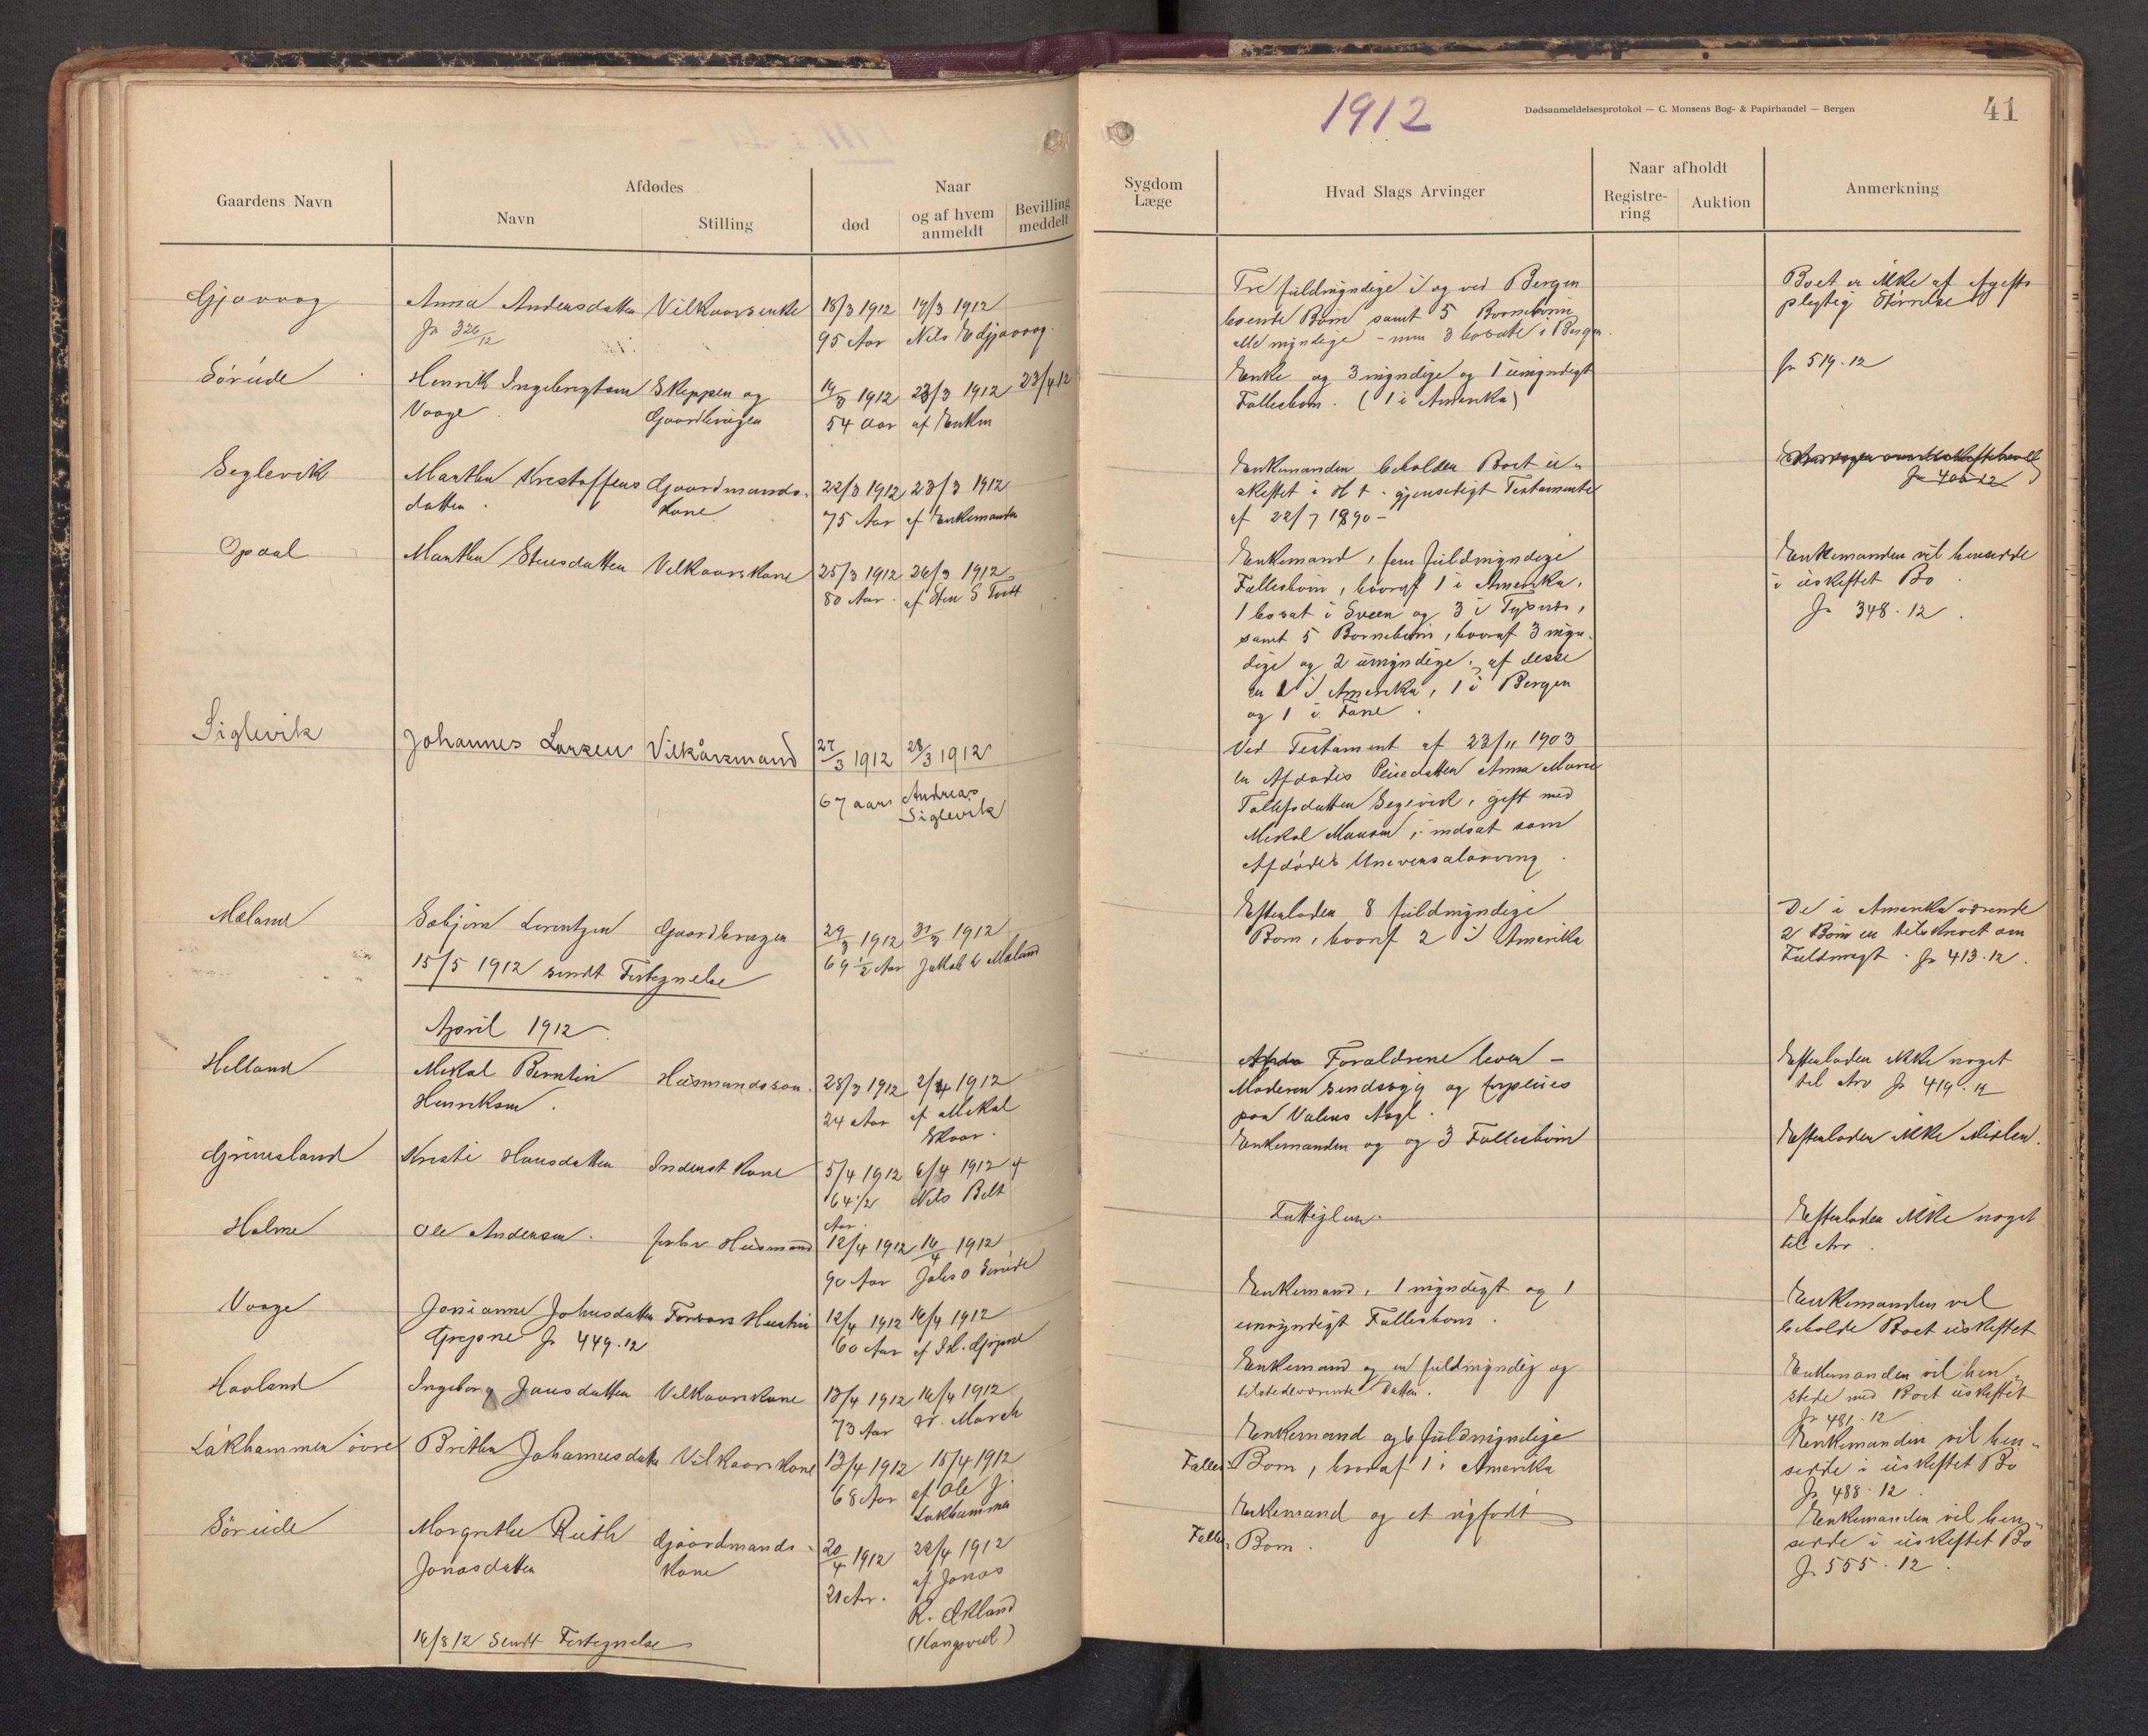 1912
Dødsanmeldelsesprotokol — C. Monsens Bog- & Papirhandel — Bergen
41
Gaardens Navn
Afdødes
Navn
Stilling
Naar
død
og af hvem anmeldt
Bevilling meddelt
Sygdom Læge
Hvad Slags Arvinger
Naar afholdt
Registre-ring
Auktion
Anmerkning
Anna Andersdatter Vilkaarsenke 18/3 1912 19/3 1912
Jr 326/12
95 Aar Nils
Tre fuldmyndige i og ved Bergen
boende Børn samt 5 Børnebørn
alle myndige - 3 bosatte i Bergen.
Boet er ikke af
plegtig Størrelse
Sørüde
Henrik Ingebrigtsen Skipper og 14/3 1912 23/3 1912 23/4 12
Vaage Gaardbruger 54 Aar af Enken
Enke og 3 myndige og 1 ümyndigt
Fællesbarn. (1 i Amerika)
Jr 519.12
Seglevik
Marthe Kristoffers Gaardmands- 22/3 1912 23/3 1912
datter. Kone 75 Aar af Enkemanden
Enkemanden beholder Boet ü-
skiftet i H t. gjensidigt Testamente
af 22/7 1890 -
Jr 406 12
Opdal
Marthe Vilkaarskone 25/3 1912 26/3 1912
80 Aar. af Sten S Tvett
Enkemand, fem füldmyndige
Fællesbørn, hvoraf 1 i Amerika,
1 bosat i Sveen og 3 i Tysnes,
samt 5 Børnebørn, hvoraf 3 myn-
dige og 2 ümyndige, af desse
er 1 i Amerika, 1 i Bergen
og 1 i Fane.
Enkemanden vil hensidde
i üskiftet Bo
Jr 348.12.
Siglevik
Johannes Larsen Vilkårsmand 27/3 1912 28/3 1912
67 aar Andreas
Siglevik
Ved Testament af 23/11 1903
er Afdødes Pleiedatter Anna Marie
gift med
indsat som
Afdødes Universalarving.
Mæland
Sæbjørn Lorentzen Gaardbruger 29/3 1912 31/3 1912
15/5 1912 sendt Fortegnelse 69 1/2 Aar Jakob Mæland
Efterlader 8 füldmyndige
Børn, hvoraf 2 i Amerika
De i Amerika værende
2 Børn er tilskrevet om
Füldmagt. Jr 413.12.
April 1912
Helland
Mikal Berntin Hüsmandssøn. 28/3 1912 2/4 1912
Henriksen. 24 Aar af Mikal
Skaar.
Forældrene lever -
Moderen sindssyg og forpleies
paa Valens Asyl.
Efterlader ikke noget
til Arv Jr 419.12
Grimesland
Kristi Hansdatter Inderst Kone 5/4 1912 6/4 1912 af
64 1/2 Nils Belt
Aar.
Enkemanden og og 3 Fællesbørn
Efterlader ikke Midler.
Holme
Ole Andersen. forhv Hüsmand 12/4 1912 14/4 1912
90 Aar Johs O Sørüde
Fattiglem.
Efterlader ikke noget
til Arv.
Vaage
Jonianne Johnsdatter Forvars Hustrü 12/4 1912 14/4 1912
Gripne Jr 449.12 60 Aar af
Enkemand, 1 myndigt og 1
umyndigt Fællesbarn.
Enkemanden vil
beholde Boet üskiftet
Haaland
Ingeborg Jansdatter Vilkaarskone 13/4 1912 14/4 1912
73 Aar
Enkemand og en füldmyndig og
tilstedeværende Datter.
Enkemanden vil hen-
sidde med Boet üskiftet
Jr 481.12
Lökhammer øvre
Brithe Johannesdatter Vilkaarskone 13/4 1912 15/4 1912
68 Aar af Ole J.
Løkhammer
Enkemand og 6 füldmyndige
Fælles- Børn, hvoraf 1 i Amerika
Enkemanden vil hen-
sidde i üskiftet Bo
Jr 488.12.
Sørüde
Margrethe Rüth Gaardmands- 20/4 1912 22/4 1912
Jonasdatter Kone 21 Aar. af Jonas
K. Økland
(Kongsvik)
Enkemand og et nyfødt
Fælles- Barn.
Enkemanden vil hen-
sidde i üskiftet Bo
Jr 555.12.
14/8 12 Sendt Fortegnelse